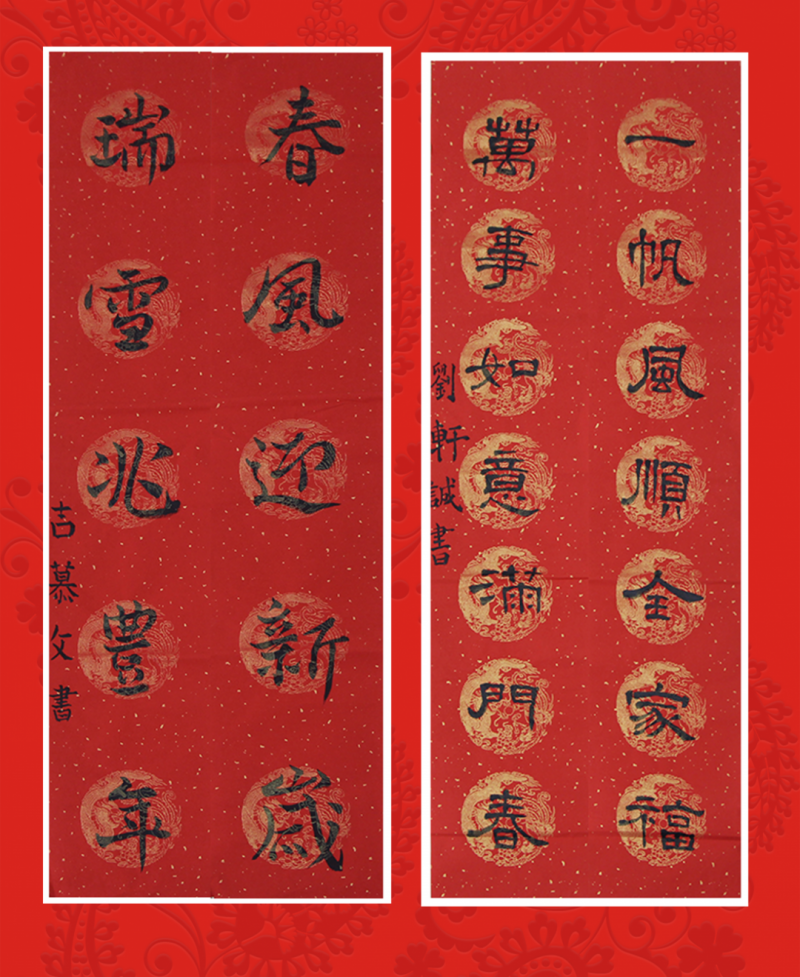 春風迎新歲
瑞雪兆豐年
吉慕文書
一帆風順全家福
萬事如意滿門春
劉軒誠書